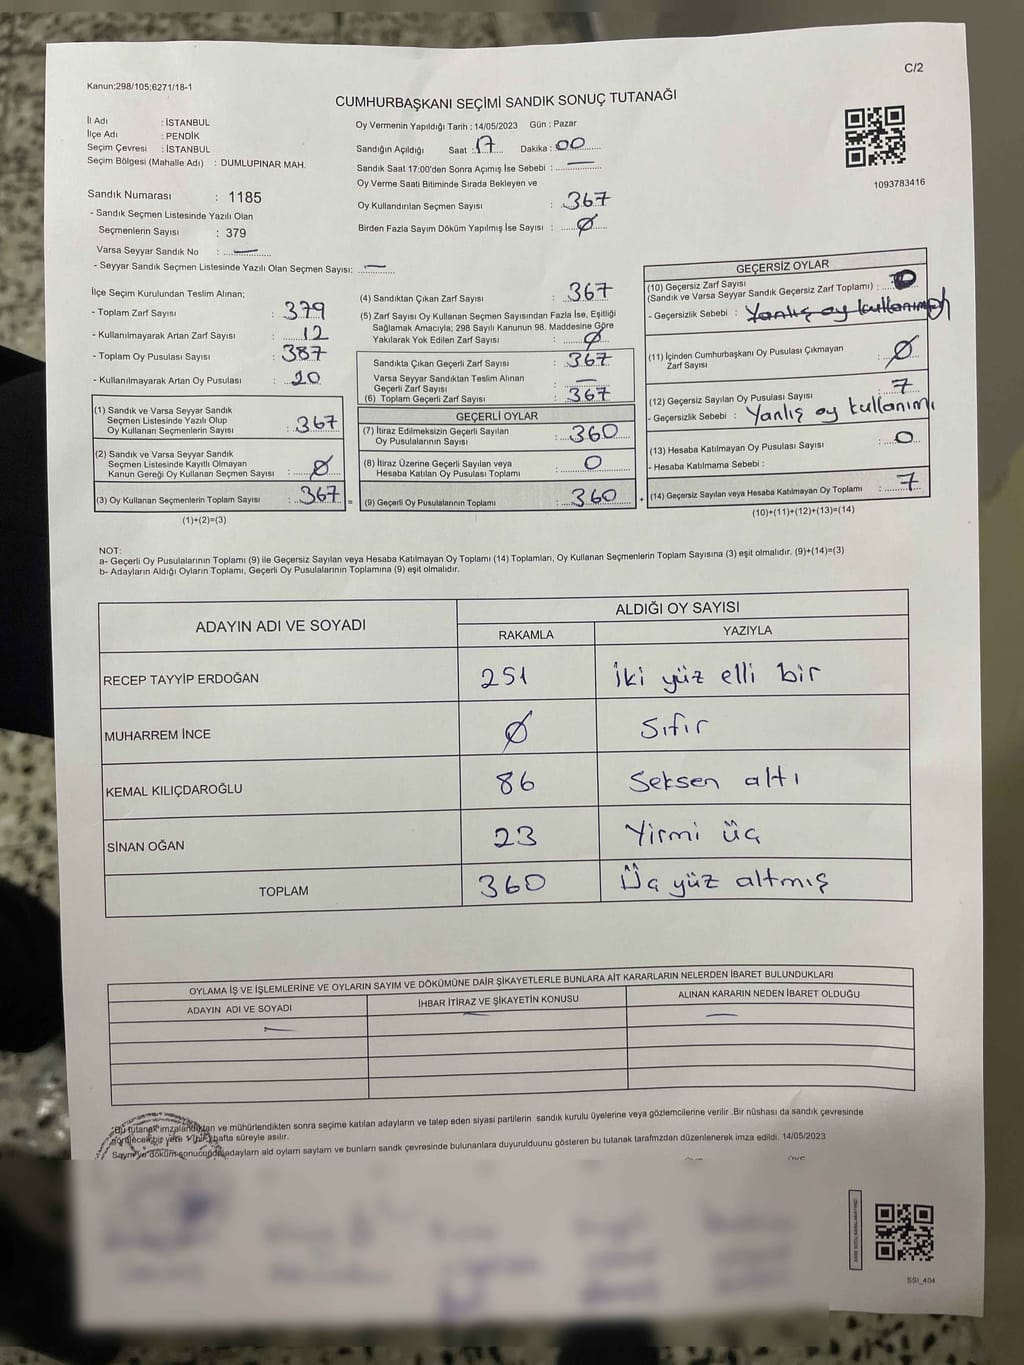 C/2
Kanun;298/105;6271/18-1
CUMHURBAŞKANI SEÇİMİ SANDIK SONUÇ TUTANAĞI
İl Adı : İSTANBUL
İlçe Adı : PENDİK
Seçim Çevresi : İSTANBUL
Seçim Bölgesi (Mahalle Adı) : DUMLUPINAR MAH.
Sandık Numarası : 1185
- Sandık Seçmen Listesinde Yazılı Olan
Seçmenlerin Sayısı : 379
Varsa Seyyar Sandık No : —
- Seyyar Sandık Seçmen Listesinde Yazılı Olan Seçmen Sayısı: —
Oy Vermenin Yapıldığı Tarih : 14/05/2023 Gün : Pazar
Sandığın Açıldığı Saat : 17 Dakika : 00
Sandık Saat 17:00'den Sonra Açımış İse Sebebi : —
Oy Verme Saati Bitiminde Sırada Bekleyen ve
Oy Kullandırılan Seçmen Sayısı : 367
Birden Fazla Sayım Döküm Yapılmış İse Sayısı : Ø
1093783416
İlçe Seçim Kurulundan Teslim Alınan;
- Toplam Zarf Sayısı : 379
- Kullanılmayarak Artan Zarf Sayısı : 12
- Toplam Oy Pusulası Sayısı : 387
- Kullanılmayarak Artan Oy Pusulası : 20
(1) Sandık ve Varsa Seyyar Sandık
Seçmen Listesinde Yazılı Olup
Oy Kullanan Seçmenlerin Sayısı : 367
(2) Sandık ve Varsa Seyyar Sandık
Seçmen Listesinde Kayıtlı Olmayan
Kanun Gereği Oy Kullanan Seçmen Sayısı : Ø
(3) Oy Kullanan Seçmenlerin Toplam Sayısı : 367 =
(1)+(2)=(3)
(4) Sandıktan Çıkan Zarf Sayısı : 367
(5) Zarf Sayısı Oy Kullanan Seçmen Sayısından Fazla İse, Eşitliği
Sağlamak Amacıyla; 298 Sayılı Kanunun 98. Maddesine Göre
Yakılarak Yok Edilen Zarf Sayısı : Ø
Sandıkta Çıkan Geçerli Zarf Sayısı : 367
Varsa Seyyar Sandıktan Teslim Alınan
Geçerli Zarf Sayısı : —
(6) Toplam Geçerli Zarf Sayısı : 367
GEÇERLİ OYLAR
(7) İtiraz Edilmeksizin Geçerli Sayılan
Oy Pusulalarının Sayısı : 360
(8) İtiraz Üzerine Geçerli Sayılan veya
Hesaba Katılan Oy Pusulası Toplamı : 0
(9) Geçerli Oy Pusulalarının Toplamı : 360 +
GEÇERSİZ OYLAR
(10) Geçersiz Zarf Sayısı
(Sandık ve Varsa Seyyar Sandık Geçersiz Zarf Toplamı) : 0
- Geçersizlik Sebebi : Yanlış oy kullanımı
(11) İçinden Cumhurbaşkanı Oy Pusulası Çıkmayan
Zarf Sayısı : Ø
(12) Geçersiz Sayılan Oy Pusulası Sayısı : 7
- Geçersizlik Sebebi : Yanlış oy kullanımı
(13) Hesaba Katılmayan Oy Pusulası Sayısı : 0
- Hesaba Katılmama Sebebi :
(14) Geçersiz Sayılan veya Hesaba Katılmayan Oy Toplamı : 7
(10)+(11)+(12)+(13)=(14)
NOT:
a- Geçerli Oy Pusulalarının Toplamı (9) ile Geçersiz Sayılan veya Hesaba Katılmayan Oy Toplamı (14) Toplamları, Oy Kullanan Seçmenlerin Toplam Sayısına (3) eşit olmalıdır. (9)+(14)=(3)
b- Adayların Aldığı Oyların Toplamı, Geçerli Oy Pusulalarının Toplamına (9) eşit olmalıdır.
ADAYIN ADI VE SOYADI
ALDIĞI OY SAYISI
RAKAMLA YAZIYLA
RECEP TAYYİP ERDOĞAN 251 İki yüz elli bir
MUHARREM İNCE Ø Sıfır
KEMAL KILIÇDAROĞLU 86 Seksen altı
SİNAN OĞAN 23 Yirmi üç
TOPLAM 360 Üç yüz altmış
OYLAMA İŞ VE İŞLEMLERİNE VE OYLARIN SAYIM VE DÖKÜMÜNE DAİR ŞİKAYETLERLE BUNLARA AİT KARARLARIN NELERDEN İBARET BULUNDUKLARI
ADAYIN ADI VE SOYADI İHBAR İTİRAZ VE ŞİKAYETİN KONUSU ALINAN KARARIN NEDEN İBARET OLDUĞU
— — —
Bu tutanak imzalandıktan ve mühürlendikten sonra seçime katılan adayların ve talep eden siyasi partilerin sandık kurulu üyelerine veya gözlemcilerine verilir .Bir nüshası da sandık çevresinde
görülecek bir yere 1 bir hafta süreyle asılır.
Sayım ve döküm sonucunda adayların ald oyların sayların ve bunların sandk çevresinde bulunanlara duyurulduunu gösteren bu tutanak tarafmzdan düzenlenerek imza edildi. 14/05/2023
SSI_404